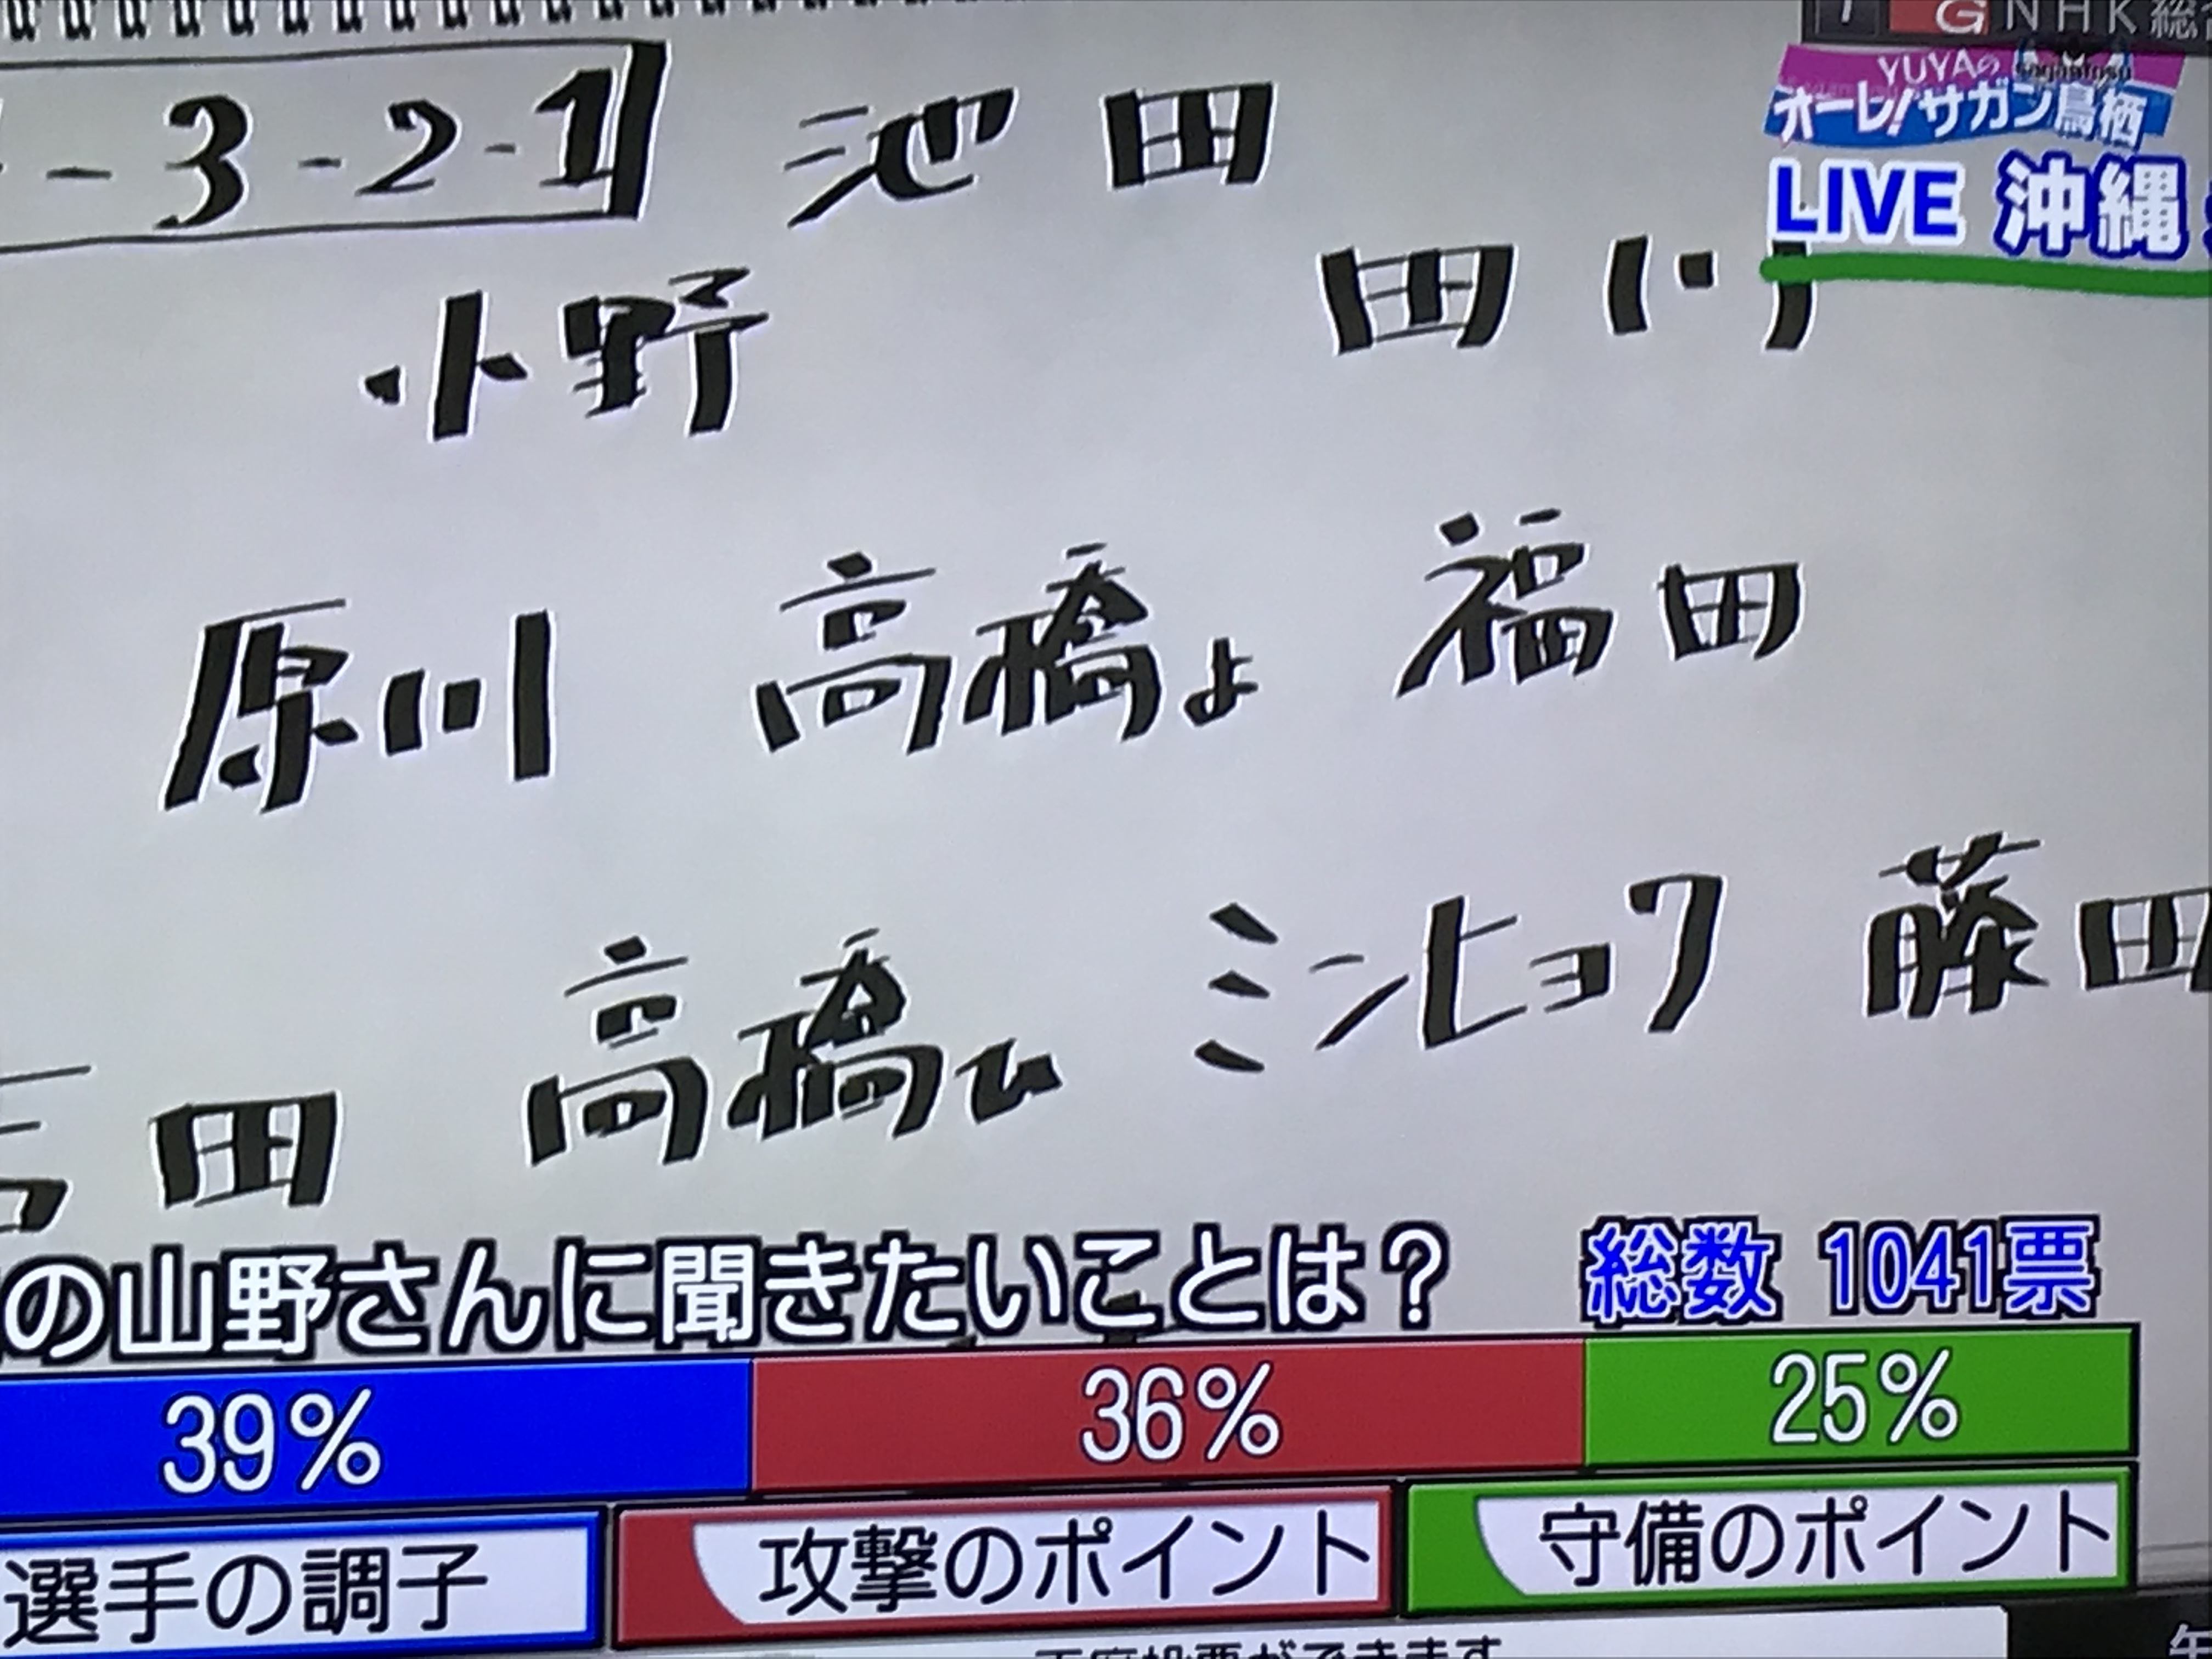 G NHK総
YUYAの
オーレ!サガン鳥栖
LIVE 沖縄
-3-2-1
池田
小野 田川
原川 高橋よ 福田
吉田 高橋ひ ミンヒョク 藤田
の山野さんに聞きたいことは? 総数 1041票
39% 36% 25%
選手の調子 攻撃のポイント 守備のポイント